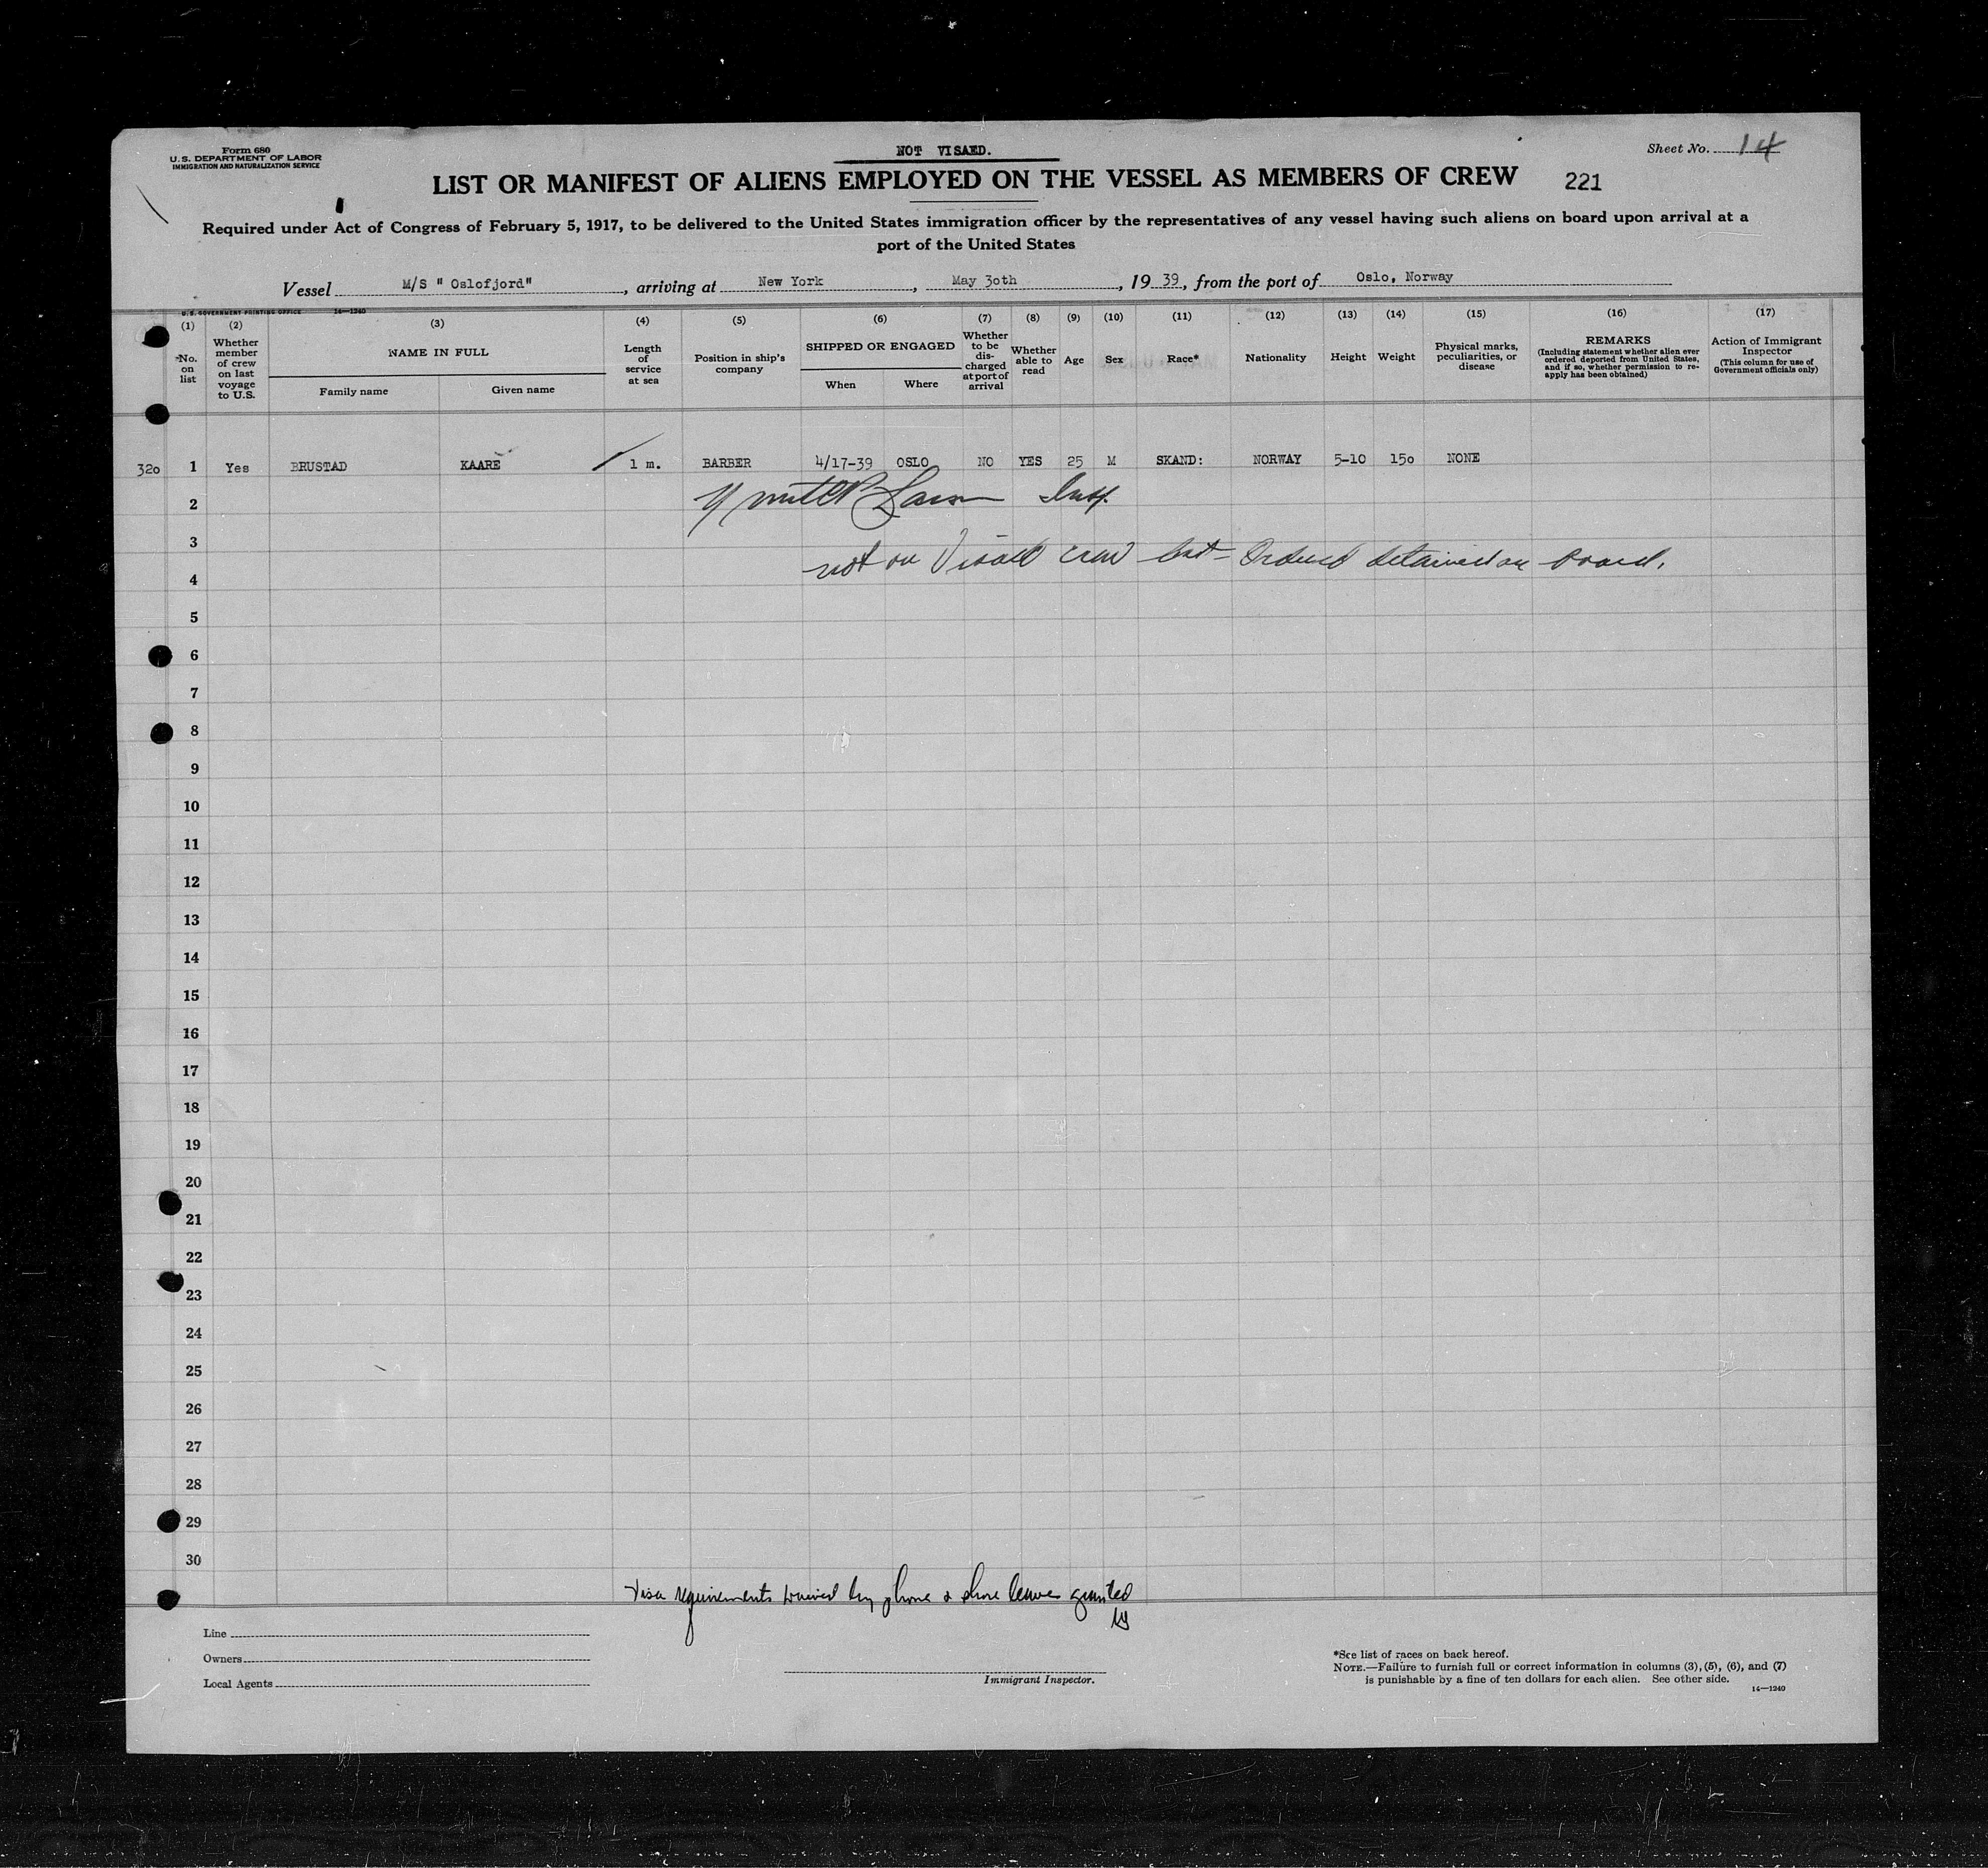 Form 680
U.S. DEPARTMENT OF LABOR
IMMIGRATION AND NATURALIZATION SERVICE
NOT VISAED.
Sheet No. 14
LIST OR MANIFEST OF ALIENS EMPLOYED ON THE VESSEL AS MEMBERS OF CREW 221
Required under Act of Congress of February 5, 1917, to be delivered to the United States immigration officer by the representatives of any vessel having such aliens on board upon arrival at a
port of the United States
Vessel M/S " Oslofjord", arriving at New York, May 3oth, 19 39, from the port of Oslo, Norway
U. S. GOVERNMENT PRINTING OFFICE 14—1240
(1) (2) (3) (4) (5) (6) (7) (8) (9) (10) (11) (12) (13) (14) (15) (16) (17)
No. on list
Whether member of crew on last voyage to U.S.
NAME IN FULL
Family name Given name
Length of service at sea
Position in ship's company
SHIPPED OR ENGAGED
When Where
Whether to be discharged at port of arrival
Whether able to read
Age
Sex
Race*
Nationality
Height
Weight
Physical marks, peculiarities, or disease
REMARKS
(Including statement whether alien ever ordered deported from United States, and if so, whether permission to re-apply has been obtained)
Action of Immigrant Inspector
(This column for use of Government officials only)
32o 1 Yes BRUSTAD KAARE 1 m. BARBER 4/17-39 OSLO NO YES 25 M SKAND: NORWAY 5-10 15o NONE
2 Insp.
3
not on Visaed crew list - Ordered detained on board.
4
5
6
7
8
9
10
11
12
13
14
15
16
17
18
19
20
21
22
23
24
25
26
27
28
29
30
Visa requirements waived by phone & shore leave granted
Line
Owners
Local Agents
Immigrant Inspector.
*See list of races on back hereof.
NOTE.—Failure to furnish full or correct information in columns (3), (5), (6), and (7)
is punishable by a fine of ten dollars for each alien. See other side.
14—1240